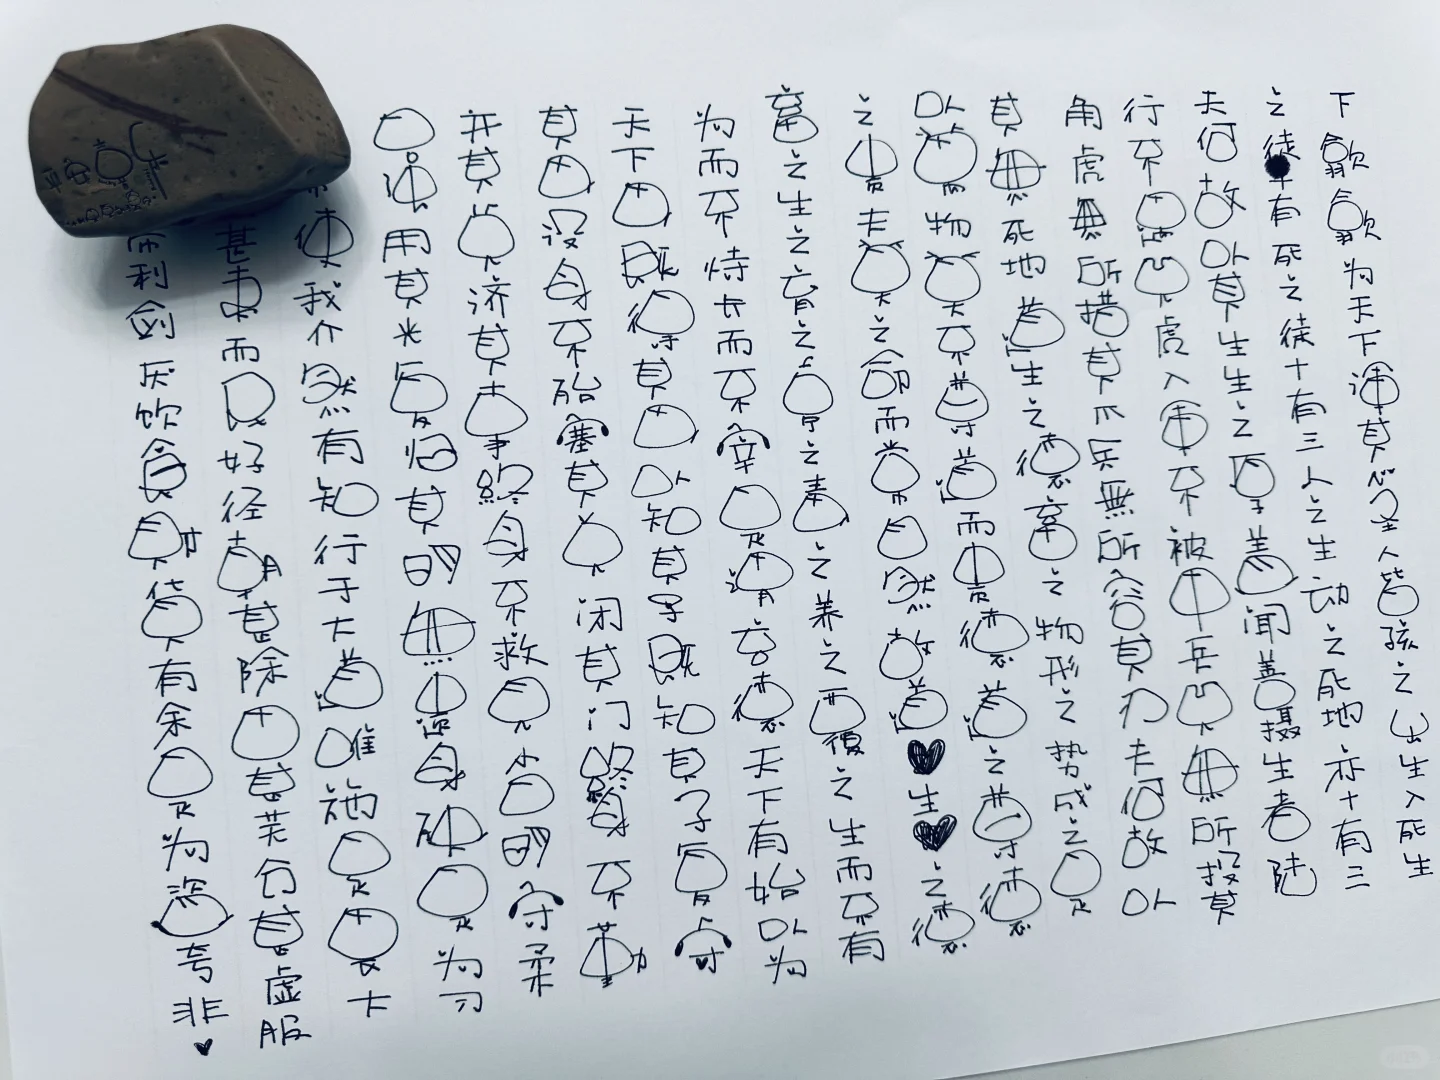 下歙歙为天下浑其心圣人皆孩之出生入死生
之徒十有死之徒十有三人之生动之死地亦十有三
夫何故以其生生之厚盖闻善摄生者陆
行不遇兕虎入军不被甲兵兕無所投其
角虎無所措其爪兵無所容其刃夫何故以
其無死地道生之德畜之物形之势成之是
以萬物莫不尊道而貴德道之尊德
之貴夫莫之命而常自然故道生之德
畜之生之育之亭之毒之养之覆之生而不有
为而不恃长而不宰是谓玄德天下有始以为
天下母既得其母以知其子既知其子复守
其母没身不殆塞其兑闭其门終身不勤
开其兑济其事終身不救見小曰明守柔
曰强用其光复归其明無遗身殃是为习
使我介然有知行于大道唯施是畏大
甚夷而民好径朝甚除田甚芜仓甚虚服
利剑厌饮食財货有余是为盗夸非